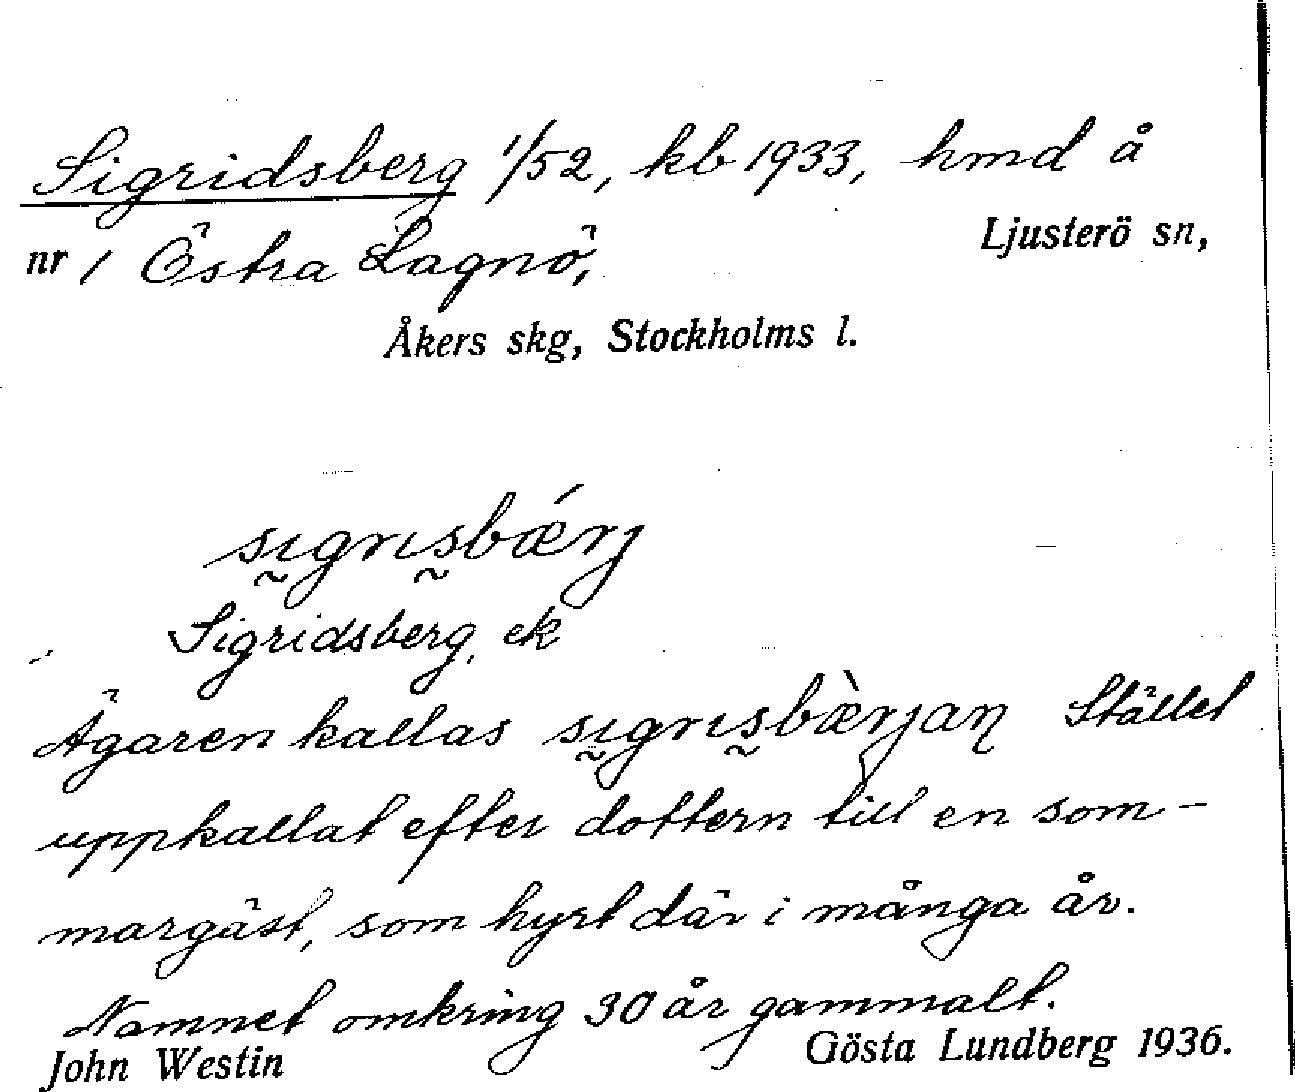 Sigridsberg 1/52, kb 1933, hmd å
nr 1 Östra Lagnö, Ljusterö sn,
Åkers skg, Stockholms l.
sıgrısbǽrj
Sigridsberg, ek
Ägaren kallas sıgrısbæ̀rjaɳ Stället
uppkallat efter dottern till en som-
margäst, som hyrt där i många år.
Namnet omkring 30 år gammalt.
John Westin Gösta Lundberg 1936.